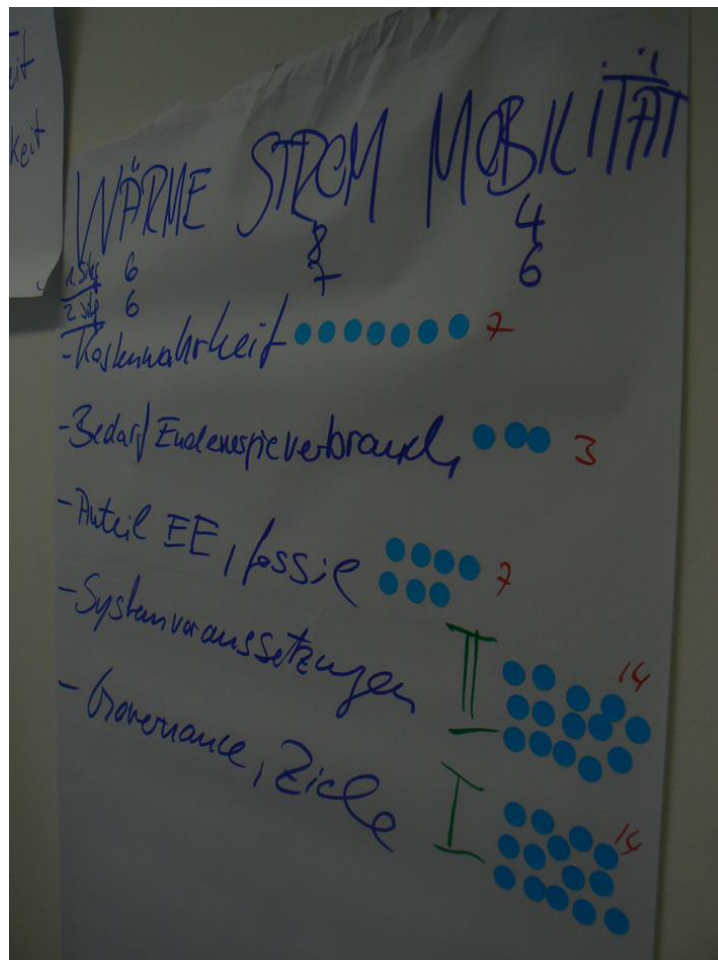 eit
keit
WÄRME STROM MOBILITÄT
6 8 4
6 7 6
- Kostenwahrheit 7
- Bedarf Endenergieverbrauch, 3
- Anteil EE, fossil 7
- Systemvoraussetzungen II 14
- Governance, Ziele I